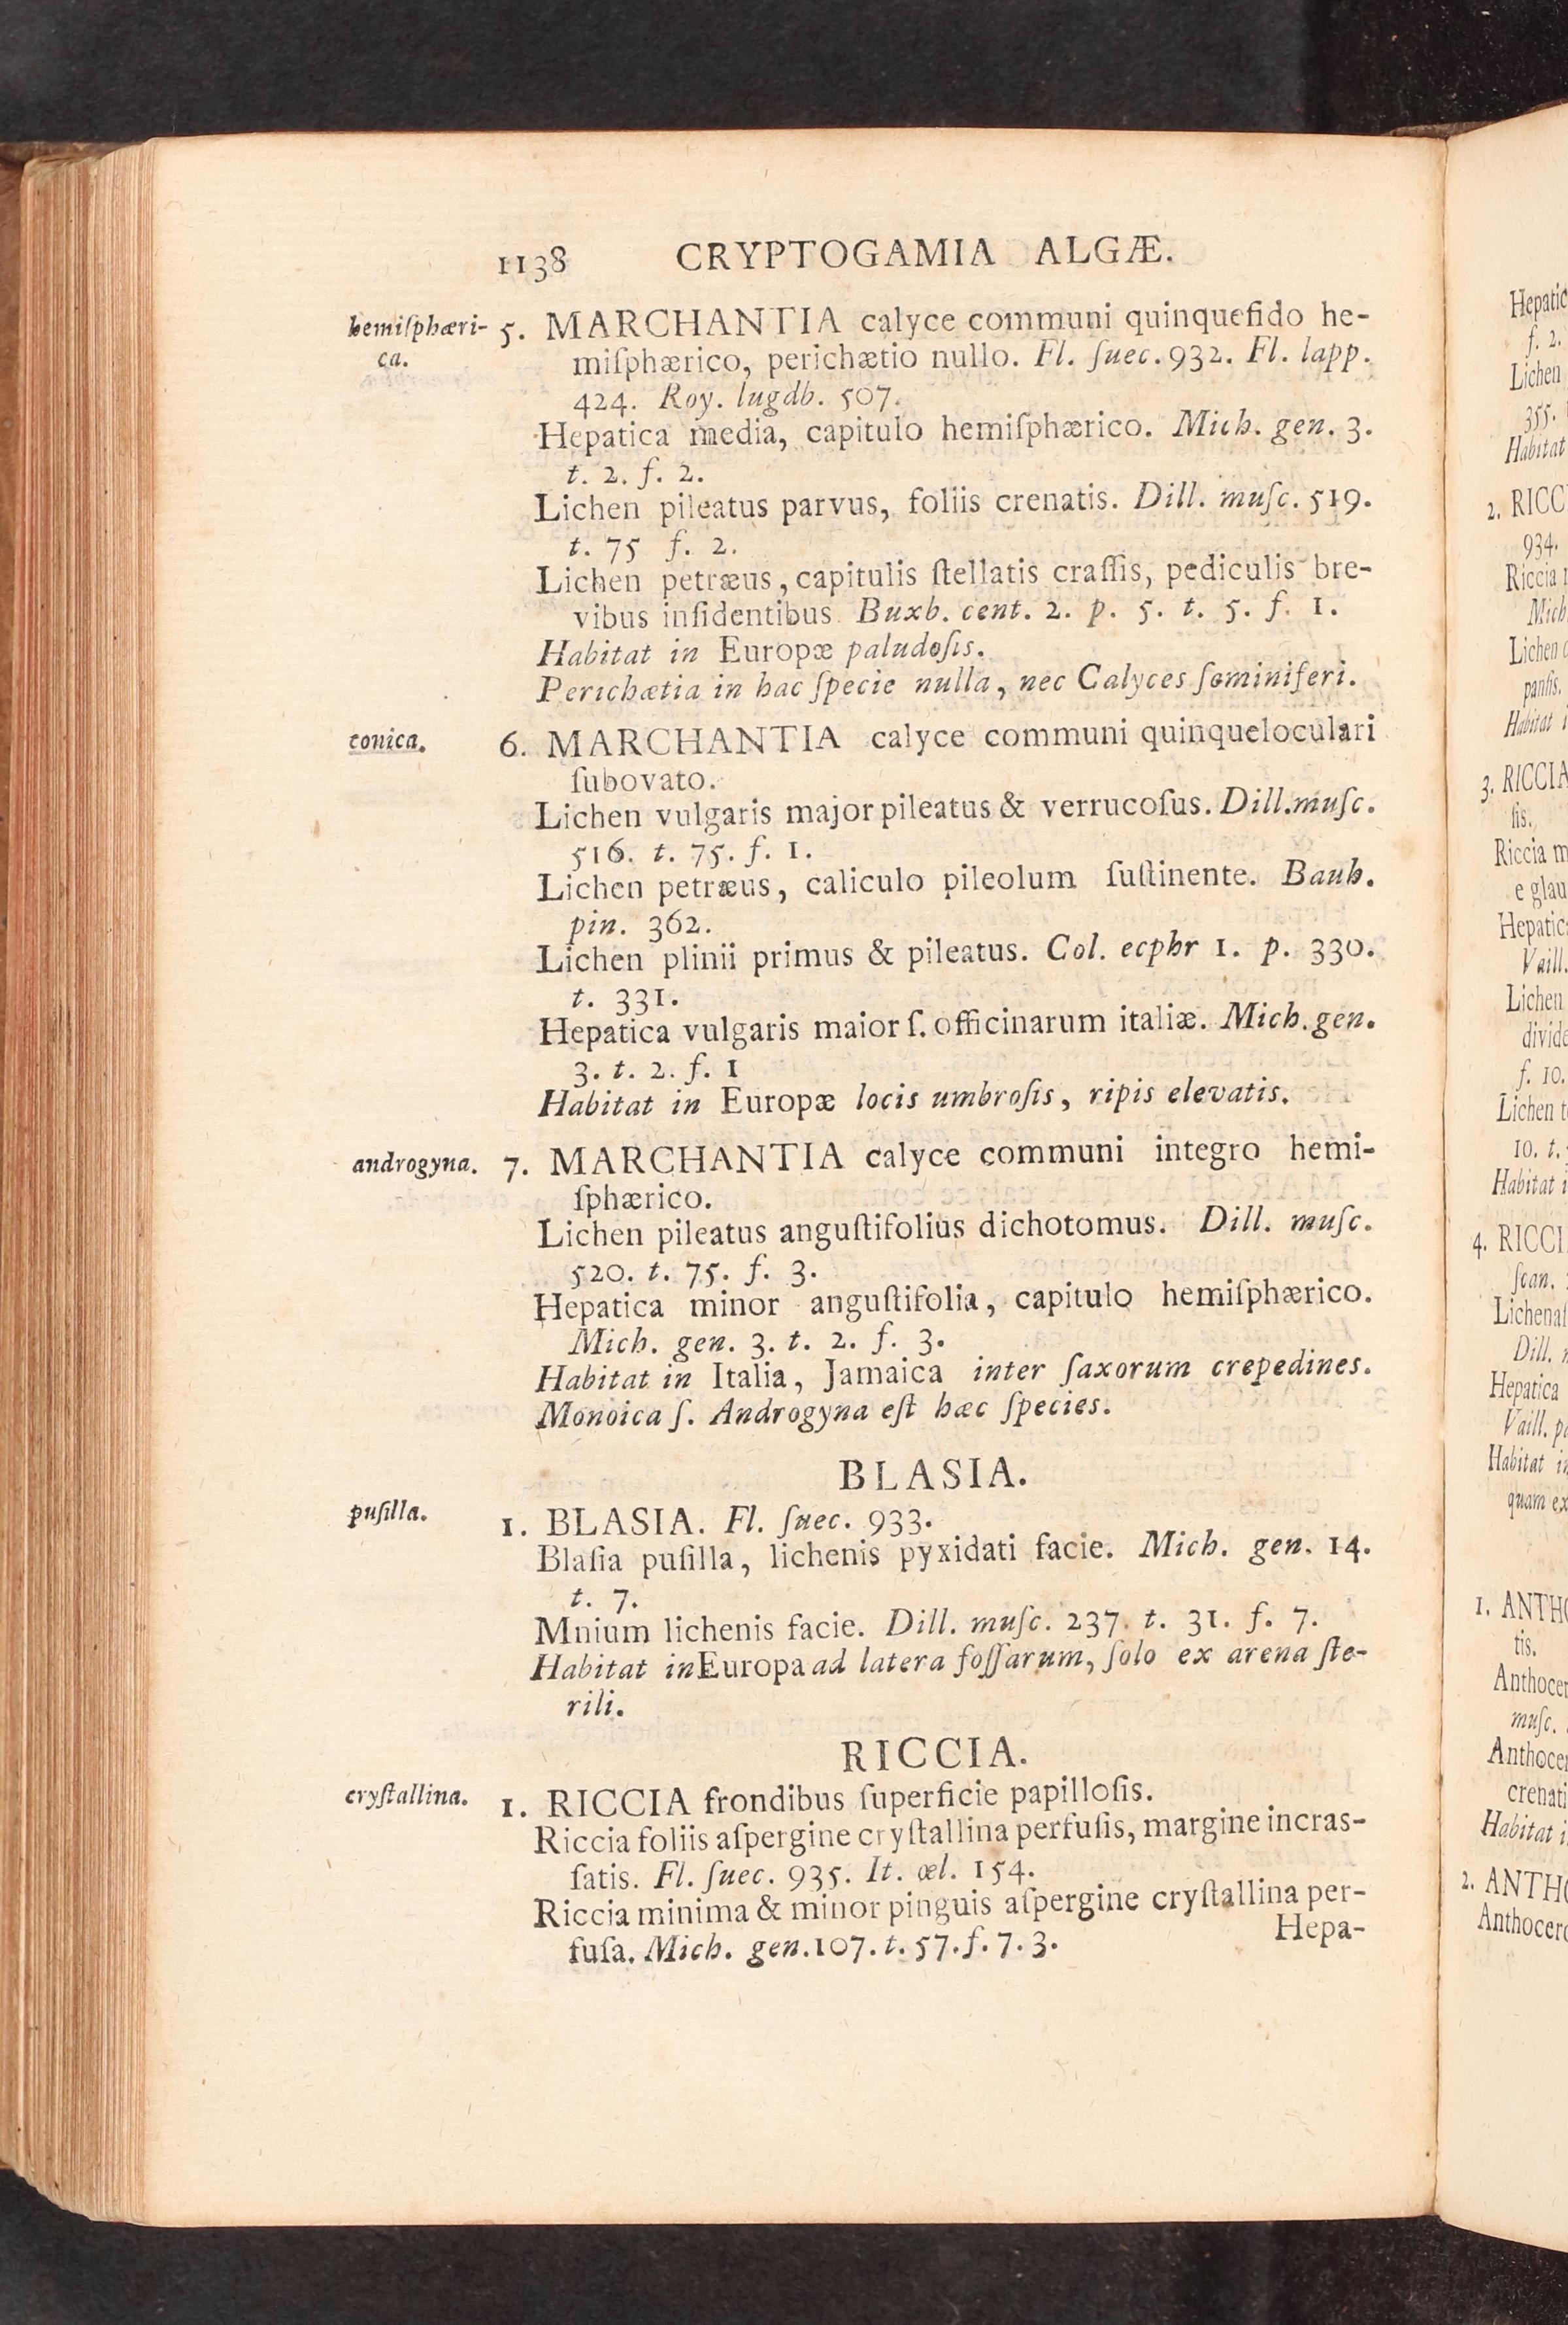 1138 CRYPTOGAMIA ALGÆ.
hemiſphæri-
ca.
5. MARCHANTIA calyce communi quinquefido he-
miſphærico, perichætio nullo. Fl. ſuec. 932. Fl. lapp.
424. Roy. lugdb. 507.
Hepatica media, capitulo hemiſphærico. Mich. gen. 3.
t. 2. f. 2.
Lichen pileatus parvus, foliis crenatis. Dill. muſc. 519.
t. 75 f. 2.
Lichen petræus, capitulis ſtellatis craſſis, pediculis bre-
vibus inſidentibus. Buxb. cent. 2. p. 5. t. 5. f. 1.
Habitat in Europæ paludoſis.
Perichætia in hac ſpecie nulla, nec Calyces ſeminiferi.
conica.
6. MARCHANTIA calyce communi quinqueloculari
ſubovato.
Lichen vulgaris major pileatus & verrucoſus. Dill. muſc.
516. t. 75. f. 1.
Lichen petræus, caliculo pileolum ſuſtinente. Bauh.
pin. 362.
Lichen plinii primus & pileatus. Col. ecphr 1. p. 330.
t. 331.
Hepatica vulgaris maior ſ. officinarum italiæ. Mich. gen.
3. t. 2. f. 1
Habitat in Europæ locis umbroſis, ripis elevatis.
androgyna.
7. MARCHANTIA calyce communi integro hemi-
ſphærico.
Lichen pileatus anguſtifolius dichotomus. Dill. muſc.
520. t. 75. f. 3.
Hepatica minor anguſtifolia, capitulo hemiſphærico.
Mich. gen. 3. t. 2. f. 3.
Habitat in Italia, Jamaica inter ſaxorum crepedines.
Monoica ſ. Androgyna eſt hæc ſpecies.
BLASIA.
puſilla.
1. BLASIA. Fl. ſuec. 933.
Blaſia puſilla, lichenis pyxidati facie. Mich. gen. 14.
t. 7.
Mnium lichenis facie. Dill. muſc. 237. t. 31. f. 7.
Habitat in Europa ad latera foſſarum, ſolo ex arena ſte-
rili.
RICCIA.
cryſtallina.
1. RICCIA frondibus ſuperficie papilloſis.
Riccia foliis aſpergine cryſtallina perfuſis, margine incras-
ſatis. Fl. ſuec. 935. It. œl. 154.
Riccia minima & minor pinguis aſpergine cryſtallina per-
fuſa. Mich. gen. 107. t. 57. f. 7. 3.
Hepa-
Hepatic
f. 2.
Lichen
355.
Habitat
2. RICC
934.
Riccia
Mich
Lichen
panſis.
Habitat i
3. RICCIA
ſis.
Riccia m
e glau
Hepatic
Vaill.
Lichen
divide
f. 10.
Lichen t
10. t.
Habitat i
4. RICCI
ſcan.
Lichenaſ
Dill.
Hepatica
Vaill. p
Habitat i
quam ex
1. ANTHO
tis.
Anthocer
muſc.
Anthocer
crenati
Habitat i
2. ANTHO
Anthocero